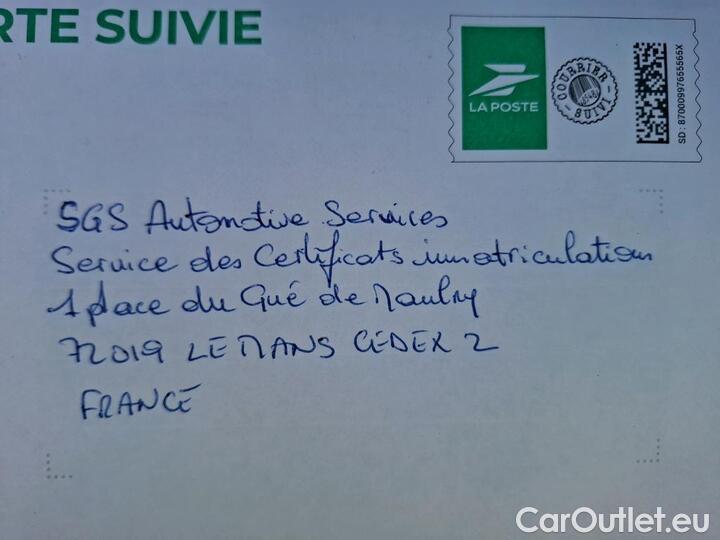 RTE SUIVIE
LA POSTE
COURRIER
SUIVI
SD : 87000997655565X
SGS Automotive Services
Service des Certificats immatriculation
1 place du Gué de Maulny
72019 LE MANS CEDEX 2
FRANCE
CarOutlet.eu